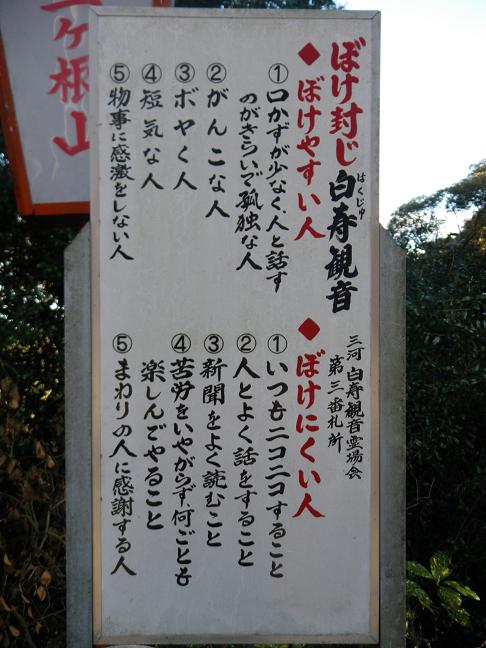 三ヶ根山
ぼけ封じ 白寿観音
はくじゅ
三河 白寿観音霊場会
第三番札所
◆ぼけやすい人
①口かずが少なく、人と話す
のがきらいで孤独な人
②がんこな人
③ボヤく人
④短気な人
⑤物事に感激をしない人
◆ぼけにくい人
①いつもニコニコすること
②人とよく話をすること
③新聞をよく読むこと
④苦労をいやがらず、何ごとも
楽しんでやること
⑤まわりの人に感謝する人